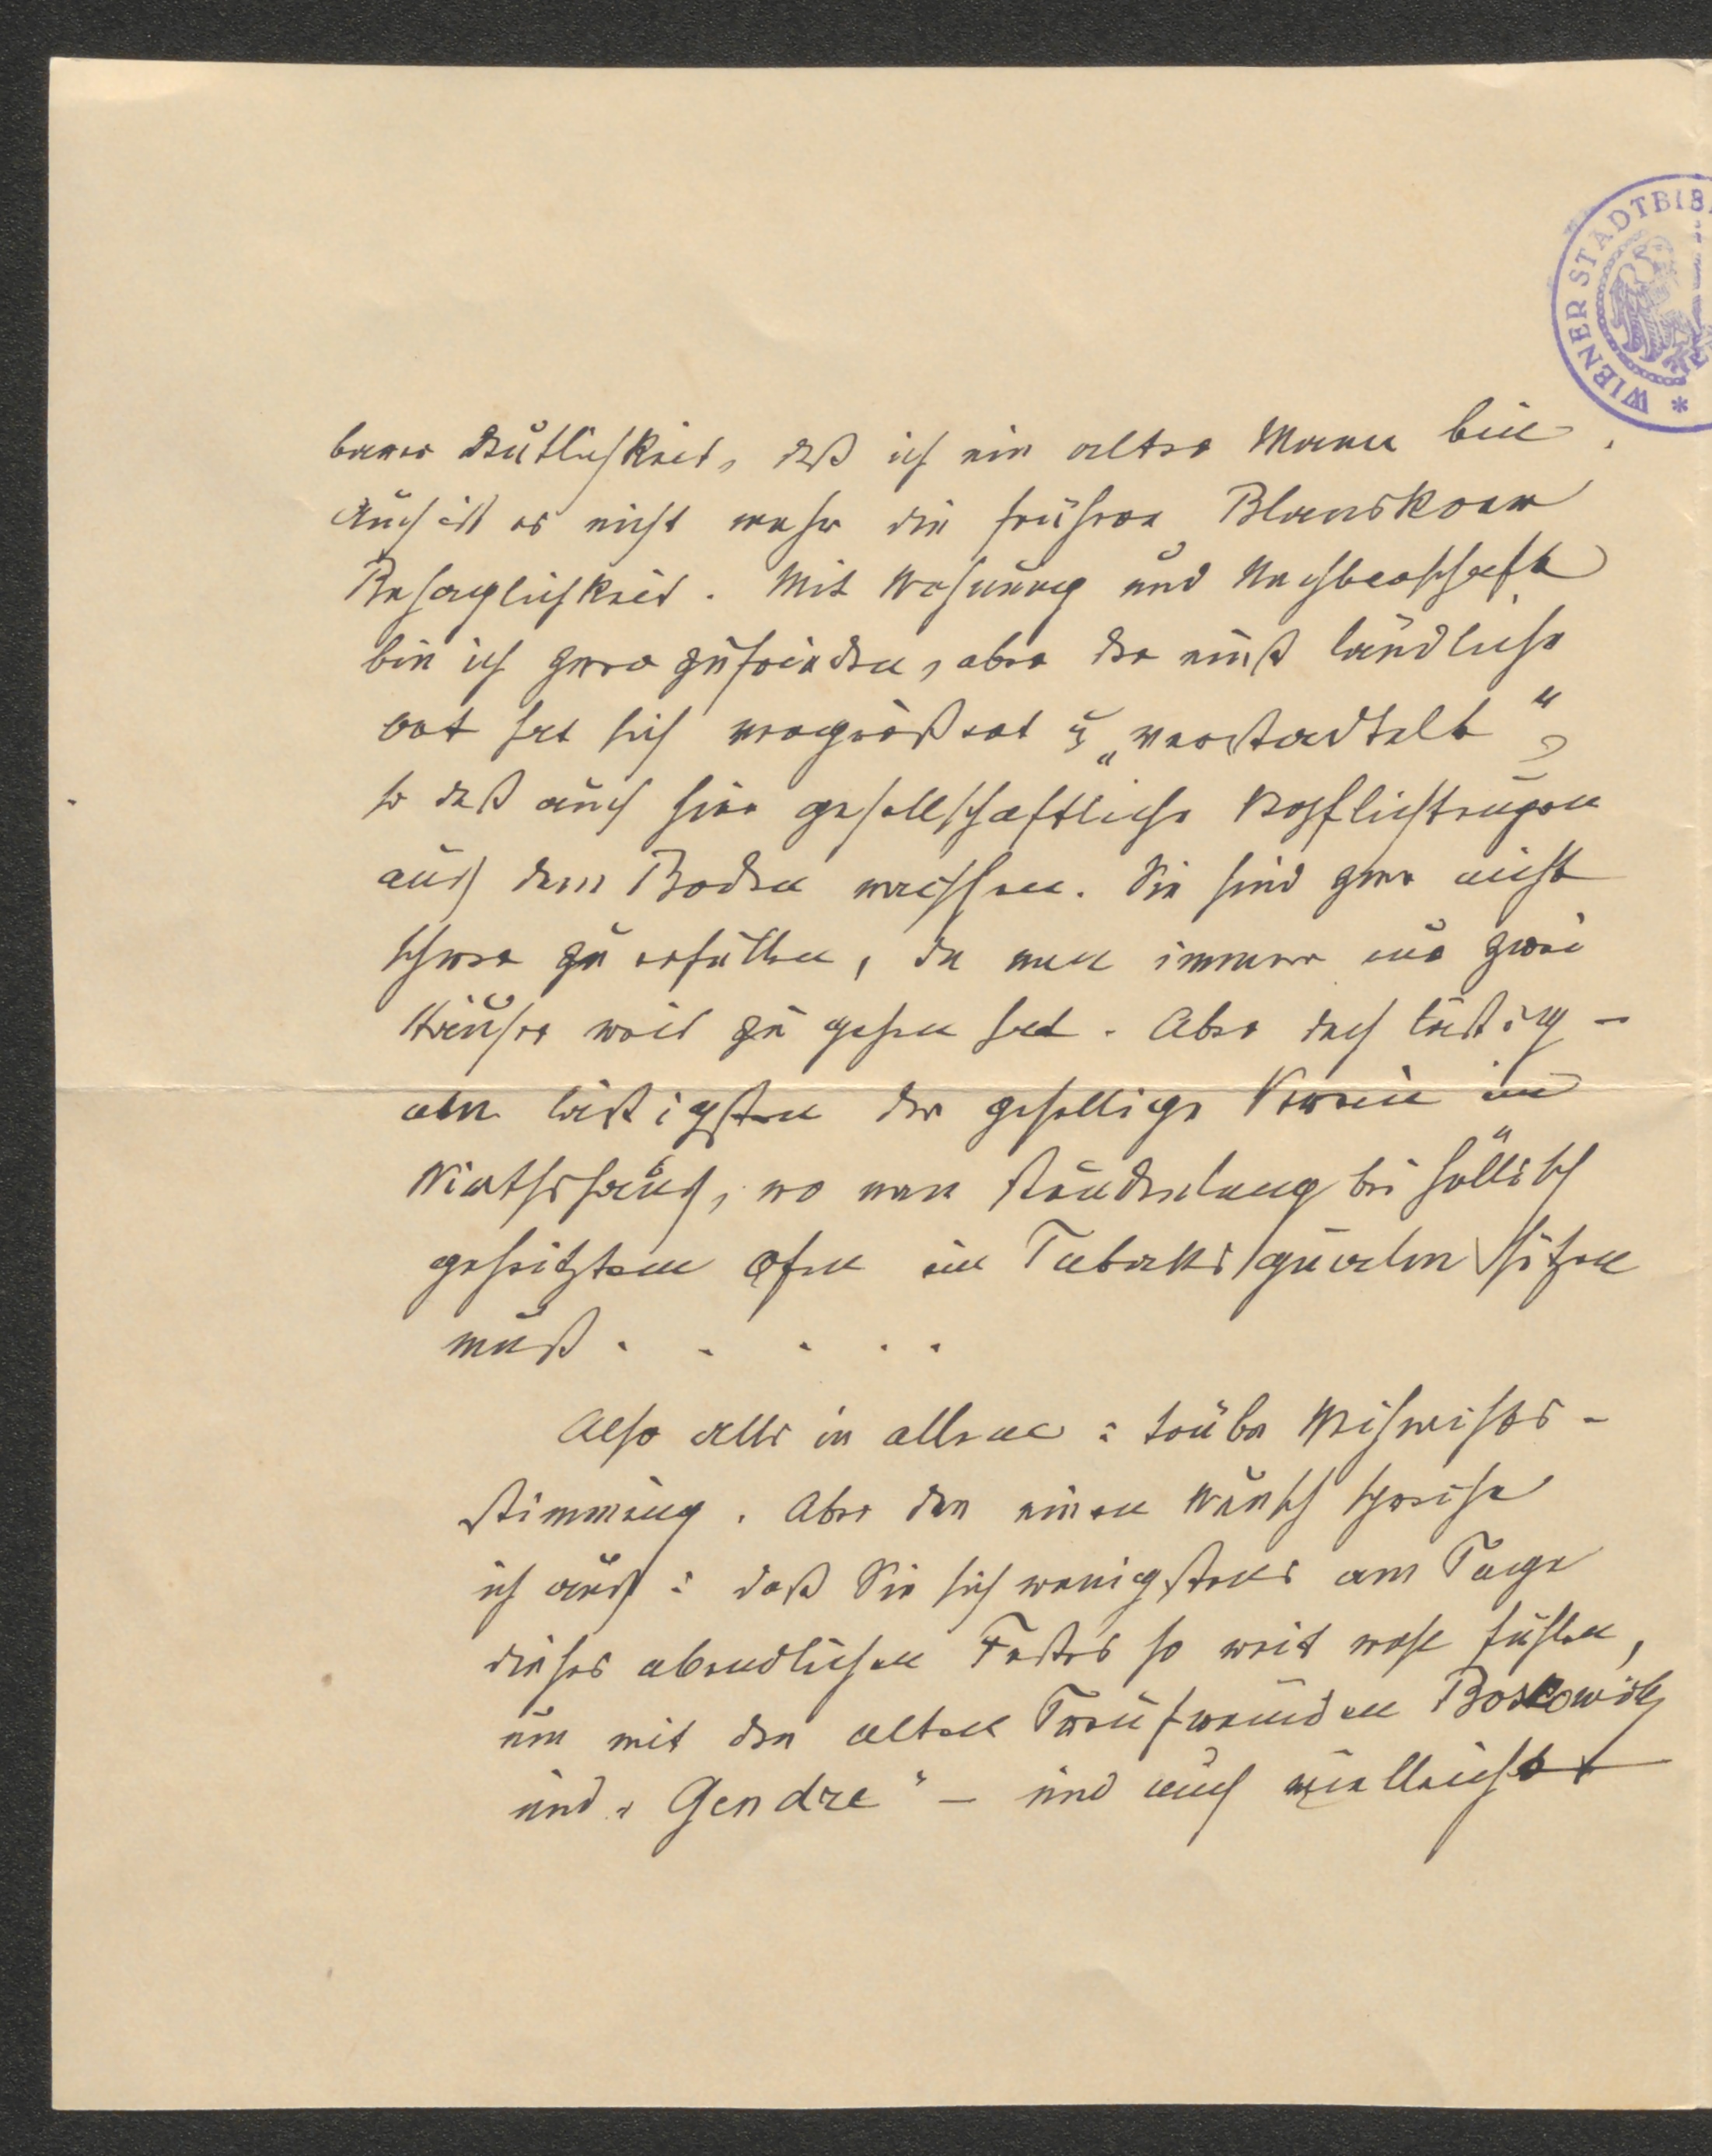 WIENER STADTBIB
barer Deutlichkeit, daß ich ein alter Mann bin.
Auch ist es nicht mehr die frühere Blanskoer
Behaglichkeit. Mit Wohnung und Nachbarschaft
bin ich zwar zufrieden, aber der einst ländliche
Ort hat sich vergrößert u „verstadtelt“,
so daß auch hier gesellschaftliche Verpflichtungen
aus dem Boden wachsen. Sie sind zwar nicht
schwer zu erfüllen, da man immer nur zwei
Häuser weit zu gehen hat. Aber doch lästig –
am lästigsten der gesellige Verein im
Wirthshaus, wo man stundenlang bei höllisch
geheiztem Ofen im Tabaksqualm sitzen
muß . . . . .
Also alles in allem: trübe Weihnachts-
stimmung. Aber den einen Wunsch spreche
ich aus: daß Sie sich wenigstens am Tage
dieses abendlichen Festes so weit wohl fühlen,
um mit den alten Freunden Boskowitz
und „Gendre“ – und auch vielleicht